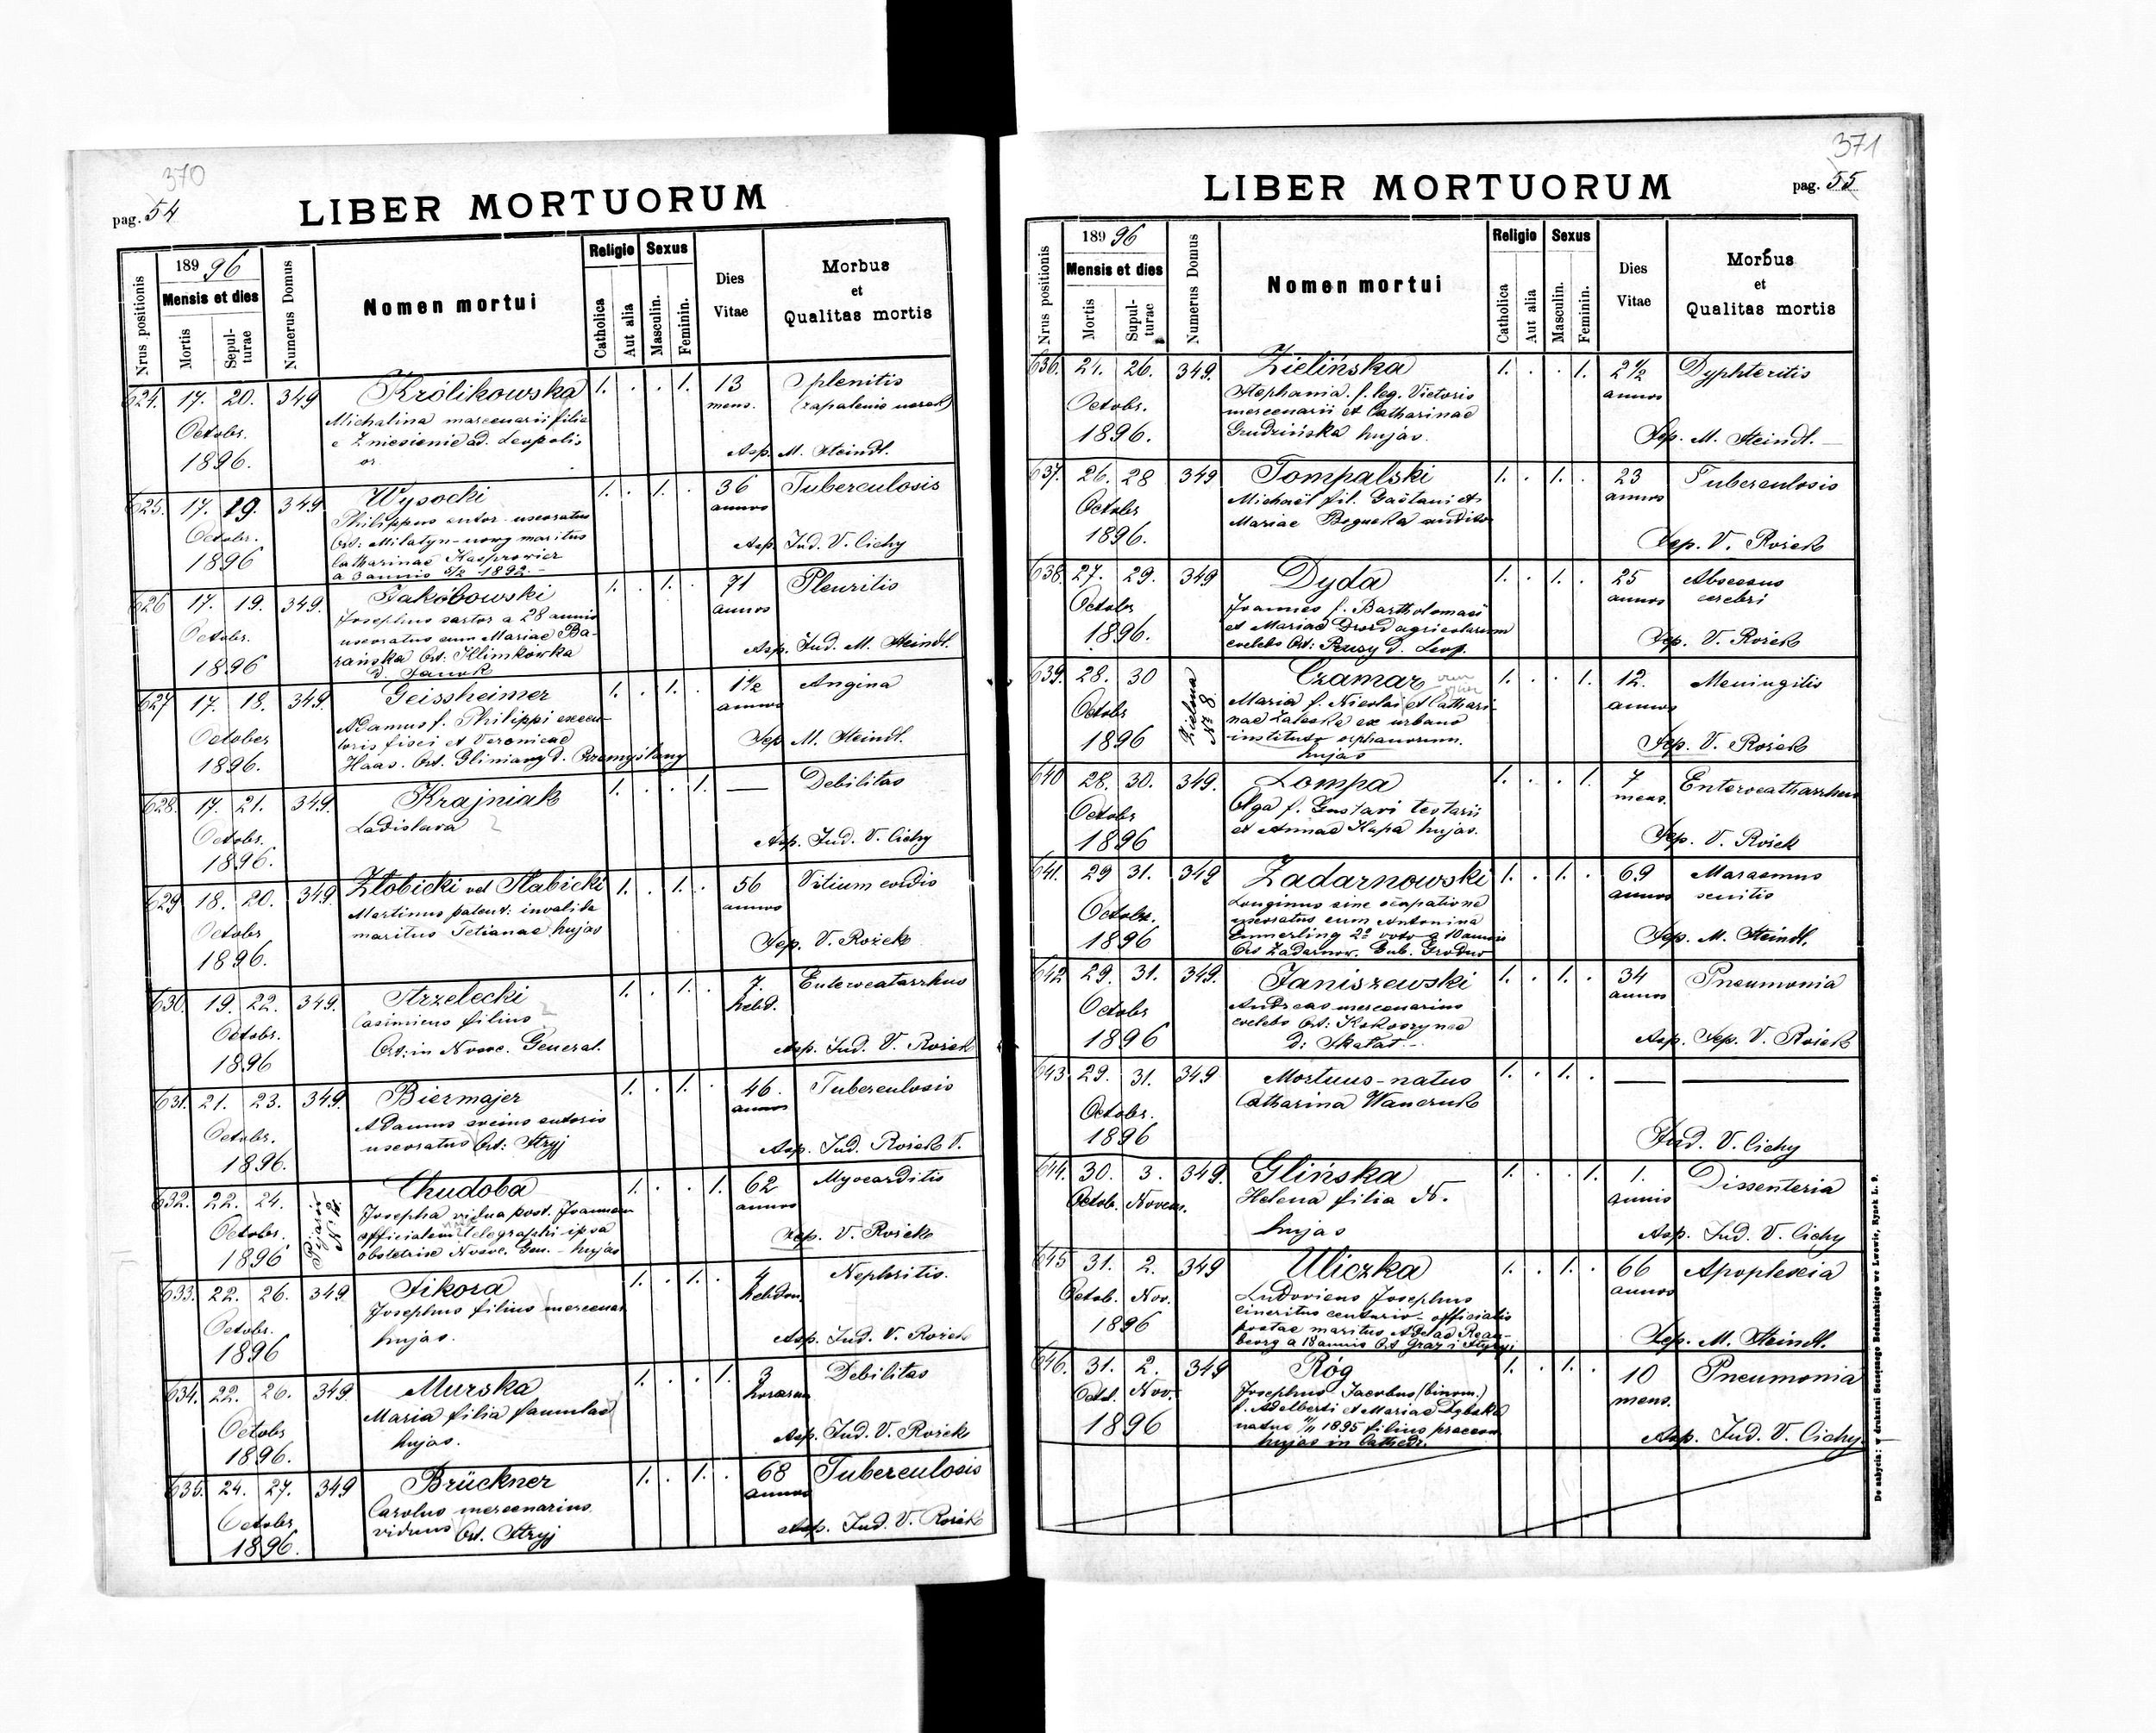 370
pag. 54
LIBER MORTUORUM
Nrus positionis
189 96
Mensis et dies
Mortis
Sepul-
turae
Numerus Domus
Nomen mortui
Religio
Catholica
Aut alia
Sexus
Masculin.
Feminin.
Dies
Vitae
Morbus
et
Qualitas mortis
624. 17. 20. 349 Królikowska 1. . . 1. 13 Splenitis
Octobr. Michalina mercenarii filia mens. (zapalenie
1896. e Zniesienie ad. Leopolis Asp. M. Steindl.
or.
625. 17. 19. 349 Wysocki 1. . 1. . 36 Tuberculosis
Octobr. Philippus sutor uxoratus annos
1896 Ort: Milatyn-nowy maritus Asp. Jud. V. Cichy
Catharinae Kasprowicz
a 3 annis 5/2 1892.-
626 17. 19. 349. Jakóbowski 1. . 1. . 71 Pleuritis
Octobr. Josephus sartor a 28 annis annos
1896 uxoratus cum Mariae Ba-
rańska Ort: Klimkówka Asp. Jud. M. Steindl.
d. Sanok
627 17. 18. 349. Geissheimer 1. . 1. . 1 1/2 Angina
October Adamus f. Philippi execu- annos
1896. toris fisci et Veronicae Sep. M. Steindl.
Haas. Ort. Gliniany d. Przemyślany
628. 17. 21. 349. Krajniak 1. . . 1. — Debilitas
Octobr. Ladislava
1896. Asp. Jud. V. Cichy
629 18. 20. 349. Złobicki vel Słabicki 1. . 1. . 56 Vitium cordis
Octobr Martinus patent: invalida annos
1896. maritus Tetianae hujas Sep. V. Rożek
630. 19. 22. 349. Strzelecki 1. . 1. . 7. Enterocatarrhus
Octobr. Casimirus filius hebd.
1896 Ort: in Nosoc. General. Asp. Jud. V. Rożek
631. 21. 23. 349. Biermajer 1. . 1. . 46. Tuberculosis
Octobr. Adamus socius sutoris annos
1896. uxoratus Ort: Stryj Asp. Jud. Rożek V.
632. 22. 24. Pijarów Nº 2. Chudoba 1. . . 1. 62 Myocarditis
Octobr. Josepha vidua post. Joannem annos
1896 officialem telegraphi ipsa Sep. V. Rożek
obstetrise Nosoc. Gen. - hujas
633. 22. 26. 349. Sikora 1. . 1. . 4 Nephritis.
Octobr. Josephus filius mercenar hebdom.
1896 hujas. Asp. Jud. V. Rożek
634. 22. 26. 349 Murska 1. . . 1. 3 Debilitas
Octobr Maria filia famulae horarum
1896. hujas. Asp. Jud. V. Rożek
635. 24. 27. 349 Brückner 1. . 1. . 68 Tuberculosis
Octobr Carolus mercenarius annos
1896. viduus Ort. Stryj Asp. Jud. V. Rożek
371
LIBER MORTUORUM
pag. 55
Nrus positionis
189 96
Mensis et dies
Mortis
Supul-
turae
Numerus Domus
Nomen mortui
Religio
Catholica
Aut alia
Sexus
Masculin.
Feminin.
Dies
Vitae
Morbus
et
Qualitas mortis
636. 24. 26. 349. Zielińska 1. . . 1. 2 1/2 Dyphteritis
Octobr. Stephania. f. leg. Victoris annos
1896. mercenarii et Catharinae
Grudzińska hujas. Sep. M. Steindl.—
637. 26. 28 349 Tompalski 1. . 1. . 23 Tuberculosis
Octobr Michaël fil. Gaëtani et annos
1896. Mariae Bogucka auditor Sep. V. Rożek
638. 27. 29. 349 Dyda 1. . 1. . 25 Abscessus
Octobr Joannes f. Bartholomaei annos cerebri
1896. et Mariae Drozd agricolarum Sep. V. Rożek
coelebs Ort: Prusy d. Leop.
639. 28. 30 Zielona Nº 8. Czamar 1. . . 1. 12. Meningitis
Octobr Maria f. Nicolai et Cathari- annos
1896 nae Zaleska ex urbano
instituto orphanorum. Sep. V. Rożek
hujas
640 28. 30. 349. Lompa 1. . . 1. 7 Enterocatharrhus
Octobr Olga f. Gustavi textarii mens.
1896 et Annae Kapa hujas. Sep. V. Rożek
641. 29 31. 349 Zadarnowski 1. . 1. . 69 Marasmus
Octobr. Longinus sine ocupatione annos senilis
1896 uxoratus cum Antonina
Emmerling 2º voto a 10 annis Sep. M. Steindl.
Ort Zadarnow. Gub. Grodno
642 29. 31. 349. Janiszewski 1. . 1. . 34 Pneumonia
Octobr Andreas mercenarius annos
1896 coelebs Ort: Kokoszynce
d: Skałat.- Asp. Sep. V. Rożek
643. 29. 31. 349 Mortuus-natus 1. . 1. . — —
Octobr. Catharina Wanczuk
1896 Jud. V. Cichy
644. 30. 3. 349. Glińska 1. . . 1. 1. Dissenteria
Octob. Novem. Helena filia N. annis
hujas Asp. Jud. V. Cichy
645 31. 2. 349 Uliczka 1. . 1. . 66 Apoplexia
Octob. Nov. Ludovicus Josephus annos
1896 emeritus centurio- officialis
postae maritus Adelae Rean-
beorg a 18 annis Ort Graz i Styryi Sep. M. Steindl.
646. 31. 2. 349 Róg 1. . 1. . 10 Pneumonia
Octd. Nov. Josephus Jacobus (binom.) mens.
1896 f. Adalberti et Mariae Dębska
natus 1895 filius praecon Asp. Jud. V. Cichy.
hujas in Cathedr.
Do nabycia: w drukarni Szczęsnego Bednarskiego we Lwowie, Rynek L. 9.